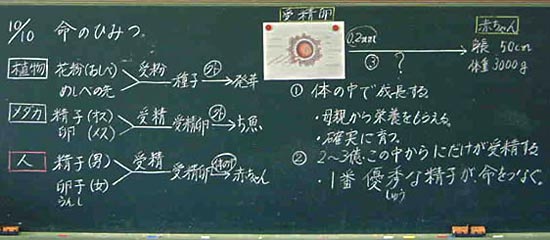 10/10 命のひみつ。
植物
花粉(おしべ)
めしべの先
受粉
種子
外
発芽
メダカ
精子(オス)
卵(メス)
受精
受精卵
外
人
精子(男)
卵子(女)
らんし
受精
受精卵
体内
赤ちゃん
受精卵
0.2mm
③
?
赤ちゃん
身長 50cm
体重 3000g
① 体の中で成長する。
・母親から栄養をもらえる。
・確実に育つ。
② 2〜3億この中から1こだけが受精する
・1番優秀な精子が命をつなぐ。
しゅう